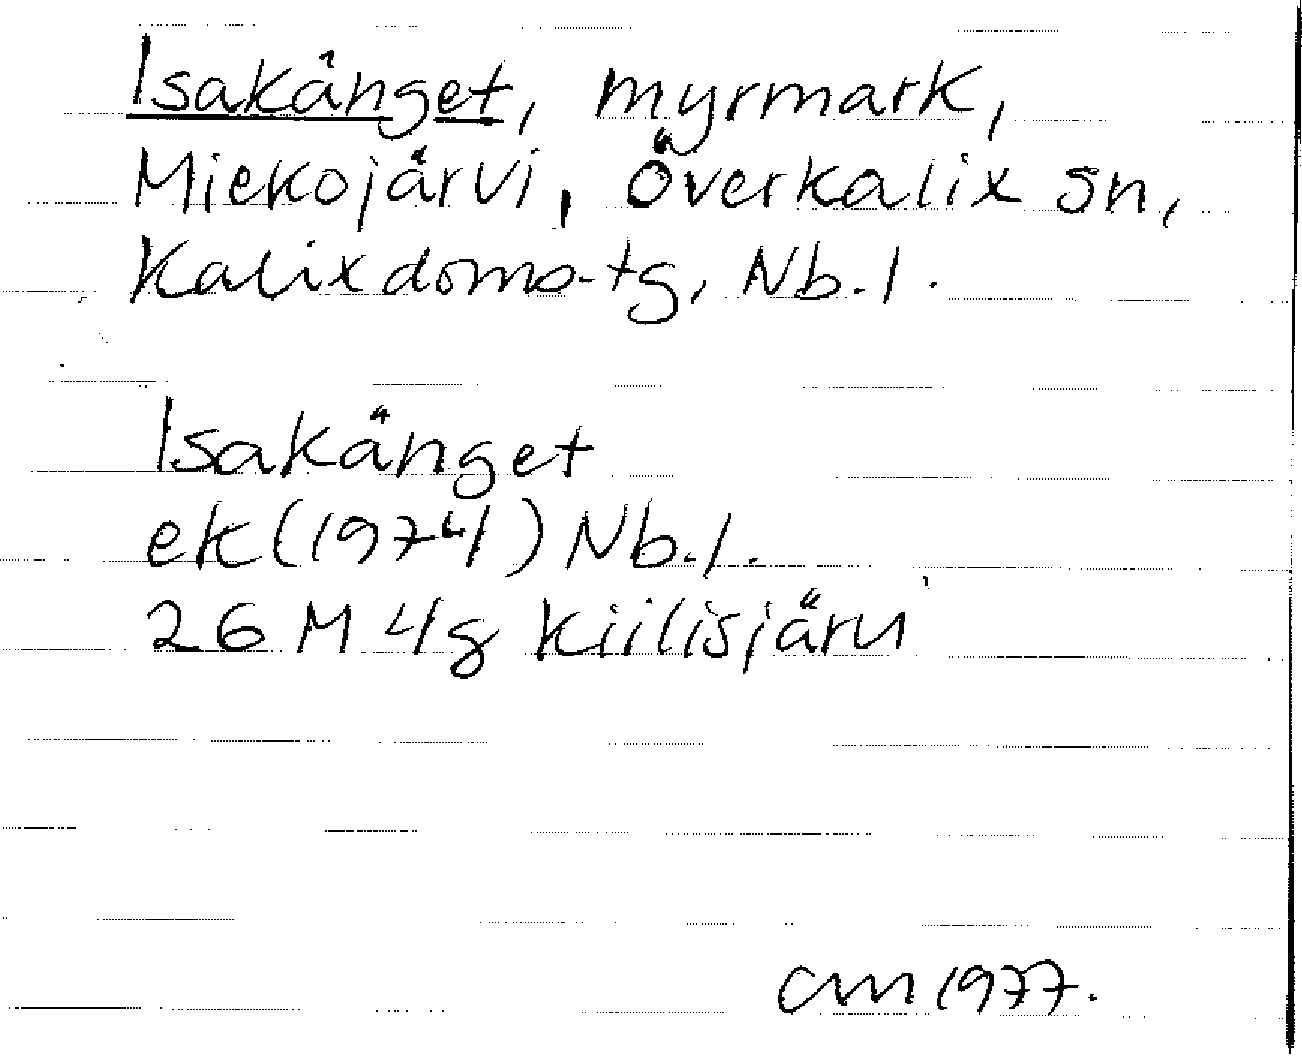 Isakänget, myrmark,
Miekojärvi, Överkalix sn,
Kalix doms-tg, Nb.l.
Isakänget
ek (1974) Nb.l.
26 M 4g Kiilisjärvi
CM 1977.